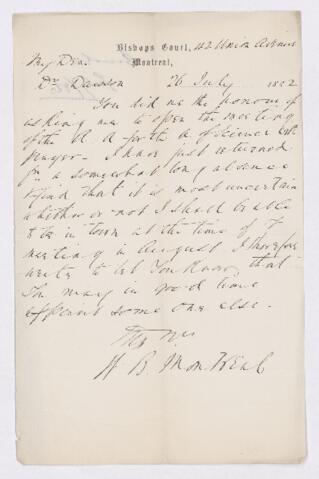 Bishops Court, 42 Union Avenue
Montreal,
My Dear
Dr Dawson 26 July 1882
You did me the honour of
asking me to open the meeting
of the A. A. for the A of Science with
prayer - I have just returned
fm a somewhat long absence
& find that it is most uncertain
whether or not I shall be able
to be in town at the time of yr
meeting in August. I therefore
write to let you know, that
you may in good time
appoint some one else.
W B. Montreal